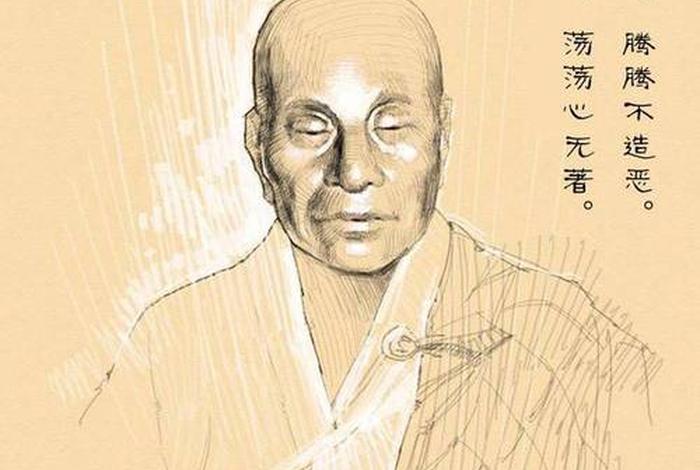 腾腾不造恶。
荡荡心无著。